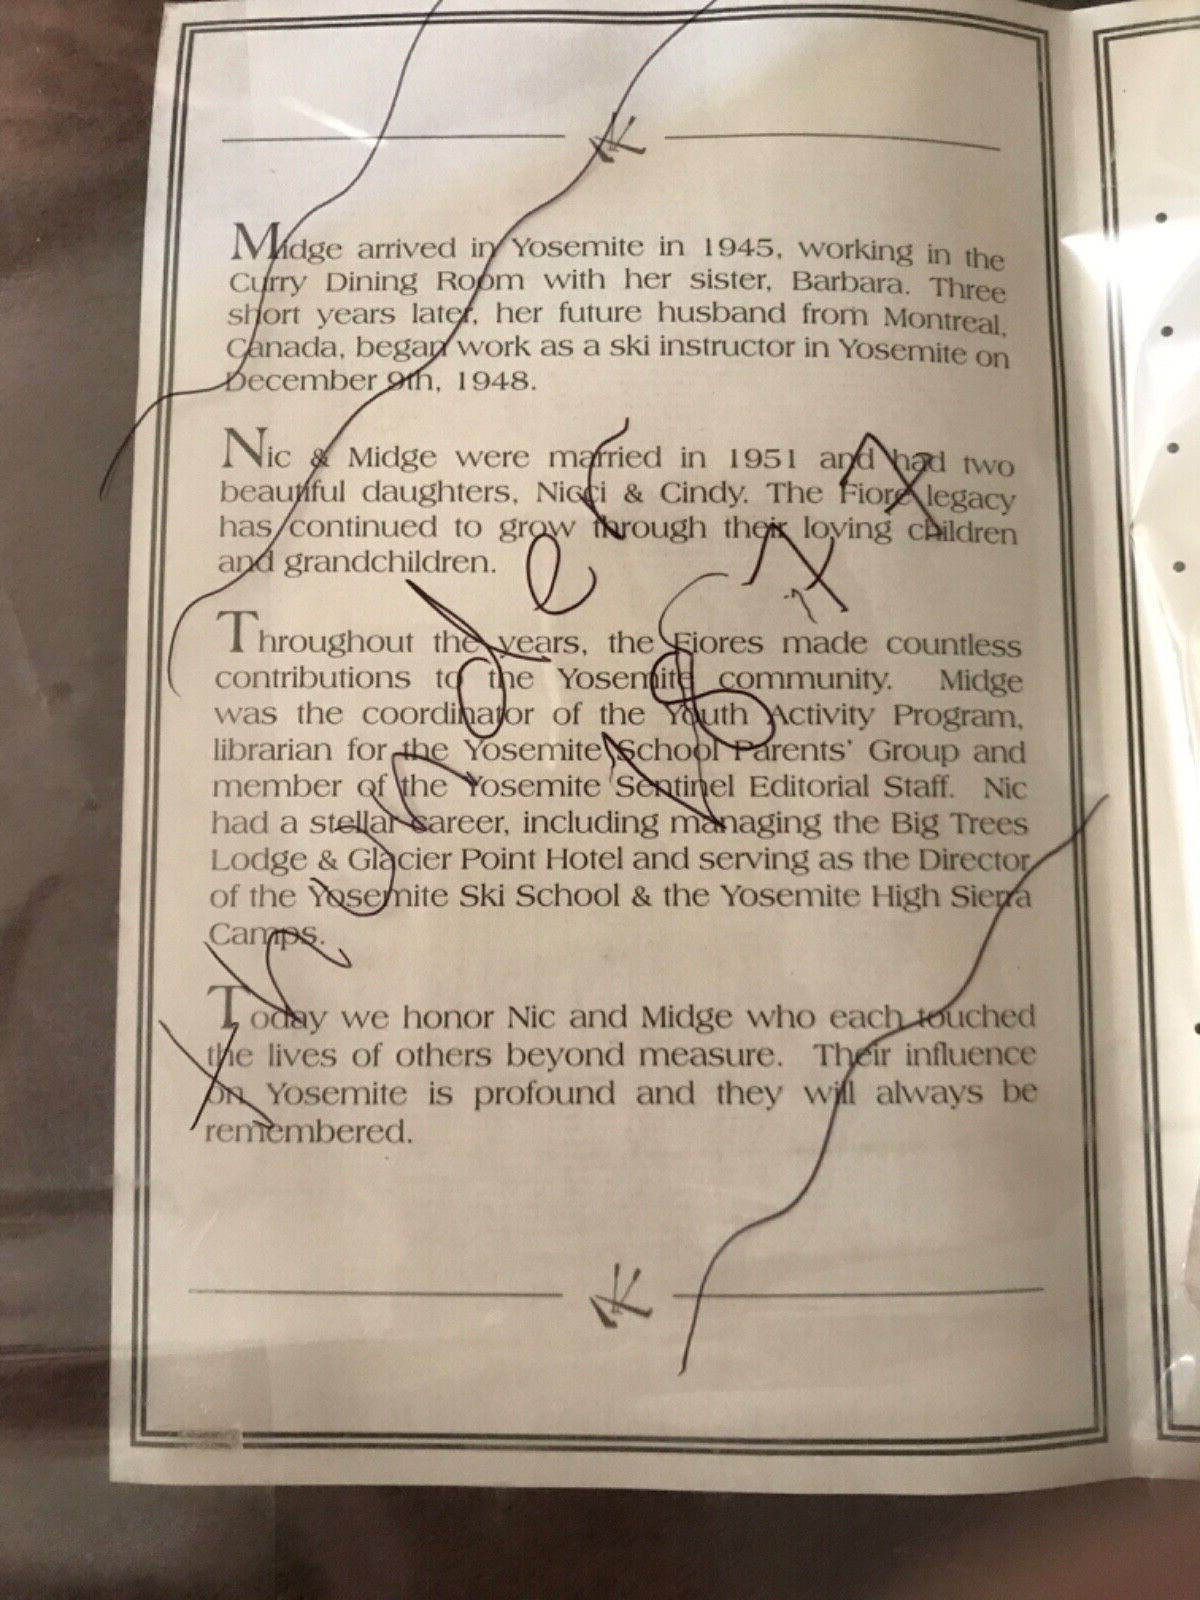 Midge arrived in Yosemite in 1945, working in the
Curry Dining Room with her sister, Barbara. Three
short years later, her future husband from Montreal,
Canada, began work as a ski instructor in Yosemite on
December 9th, 1948.
Nic & Midge were married in 1951 and had two
beautiful daughters, Nicci & Cindy. The Fiore legacy
has continued to grow through their loving children
and grandchildren.
Throughout the years, the Fiores made countless
contributions to the Yosemite community. Midge
was the coordinator of the Youth Activity Program,
librarian for the Yosemite School Parents' Group and
member of the Yosemite Sentinel Editorial Staff. Nic
had a stellar career, including managing the Big Trees
Lodge & Glacier Point Hotel and serving as the Director
of the Yosemite Ski School & the Yosemite High Sierra
Camps.
Today we honor Nic and Midge who each touched
the lives of others beyond measure. Their influence
on Yosemite is profound and they will always be
remembered.